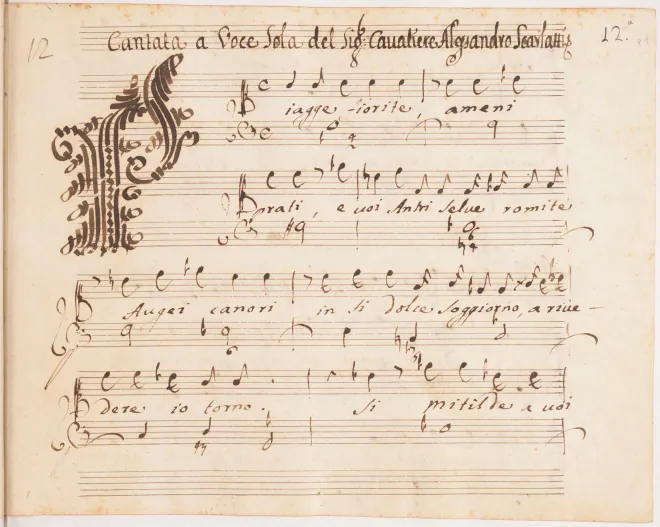 12 Cantata a Voce Sola del Sig:r Caualiere Alessandro Scarlatti 12.
Piagge fiorite, ameni
prati, e uoi Antri selue romite
Augei canori in si dolce soggiorno, a riue-
dere io torno. Si mitilde a uoi